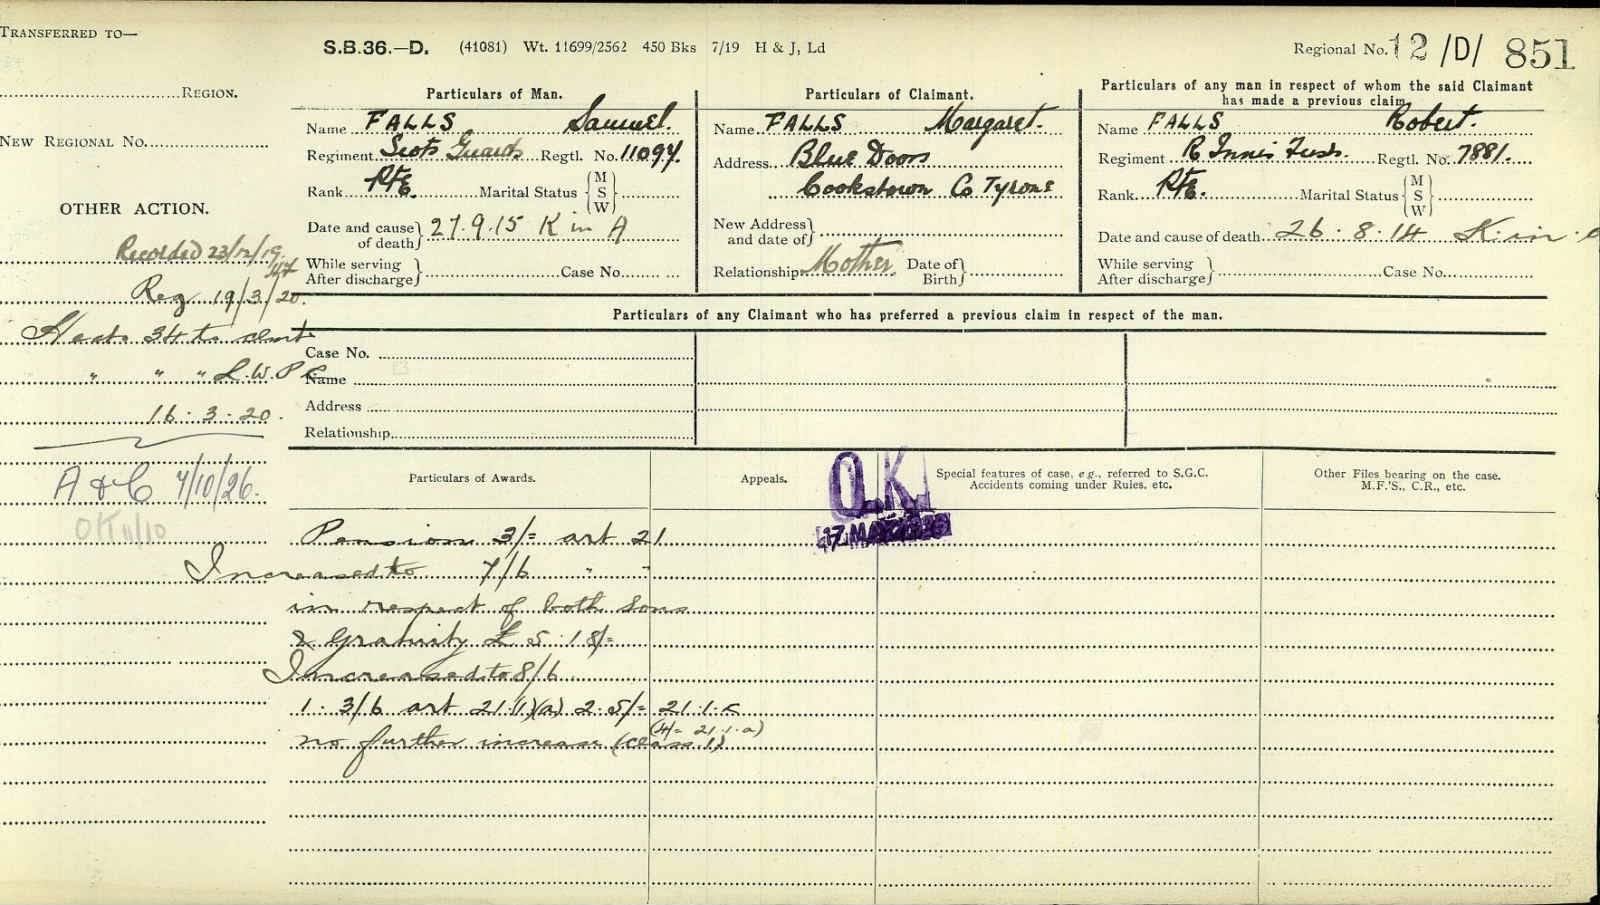 TRANSFERRED TO—
S.B.36.—D. (41081) Wt. 11699/2562 450 Bks 7/19 H & J, Ld
Regional No. 12 /D/ 851
REGION.
NEW REGIONAL NO.
OTHER ACTION.
Recorded 23/12/19
Reg 19/3/20.
34 to clmt
" " " L.W.P.C.
16.3.20.
A & C 7/10/26.
OK 11/10
Particulars of Man.
Name FALLS Samuel.
Regiment Scots Guards Regtl. No. 11094.
Rank Pte.
Marital Status { M S W }
Date and cause of death } 27.9.15 K in A
While serving
After discharge } Case No.
Particulars of Claimant.
Name FALLS Margaret.
Address Blue Doors
Cookstown Co Tyrone
New Address and date of }
Relationship Mother Date of Birth }
Particulars of any man in respect of whom the said Claimant
has made a previous claim
Name FALLS Robert.
Regiment R Innis Fus. Regtl. No. 7881.
Rank Pte. Marital Status { M S W }
Date and cause of death 26.8.14 K. in. a
While serving
After discharge } Case No.
Particulars of any Claimant who has preferred a previous claim in respect of the man.
Case No.
Name
Address
Relationship
Particulars of Awards.
Appeals.
Special features of case, e.g., referred to S.G.C.
Accidents coming under Rules, etc.
Other Files bearing on the case.
M.F.'S., C.R., etc.
O.K.
Pension 3/= art 21
Increased to 7/6 " "
in respect of both sons
& Gratuity £5:18/=
Increased to 8/6
1. 3/6 art 21.(1)(a) 2. 5/= 21.1.c
(4/= 21.1.a)
no further increase (class 1)